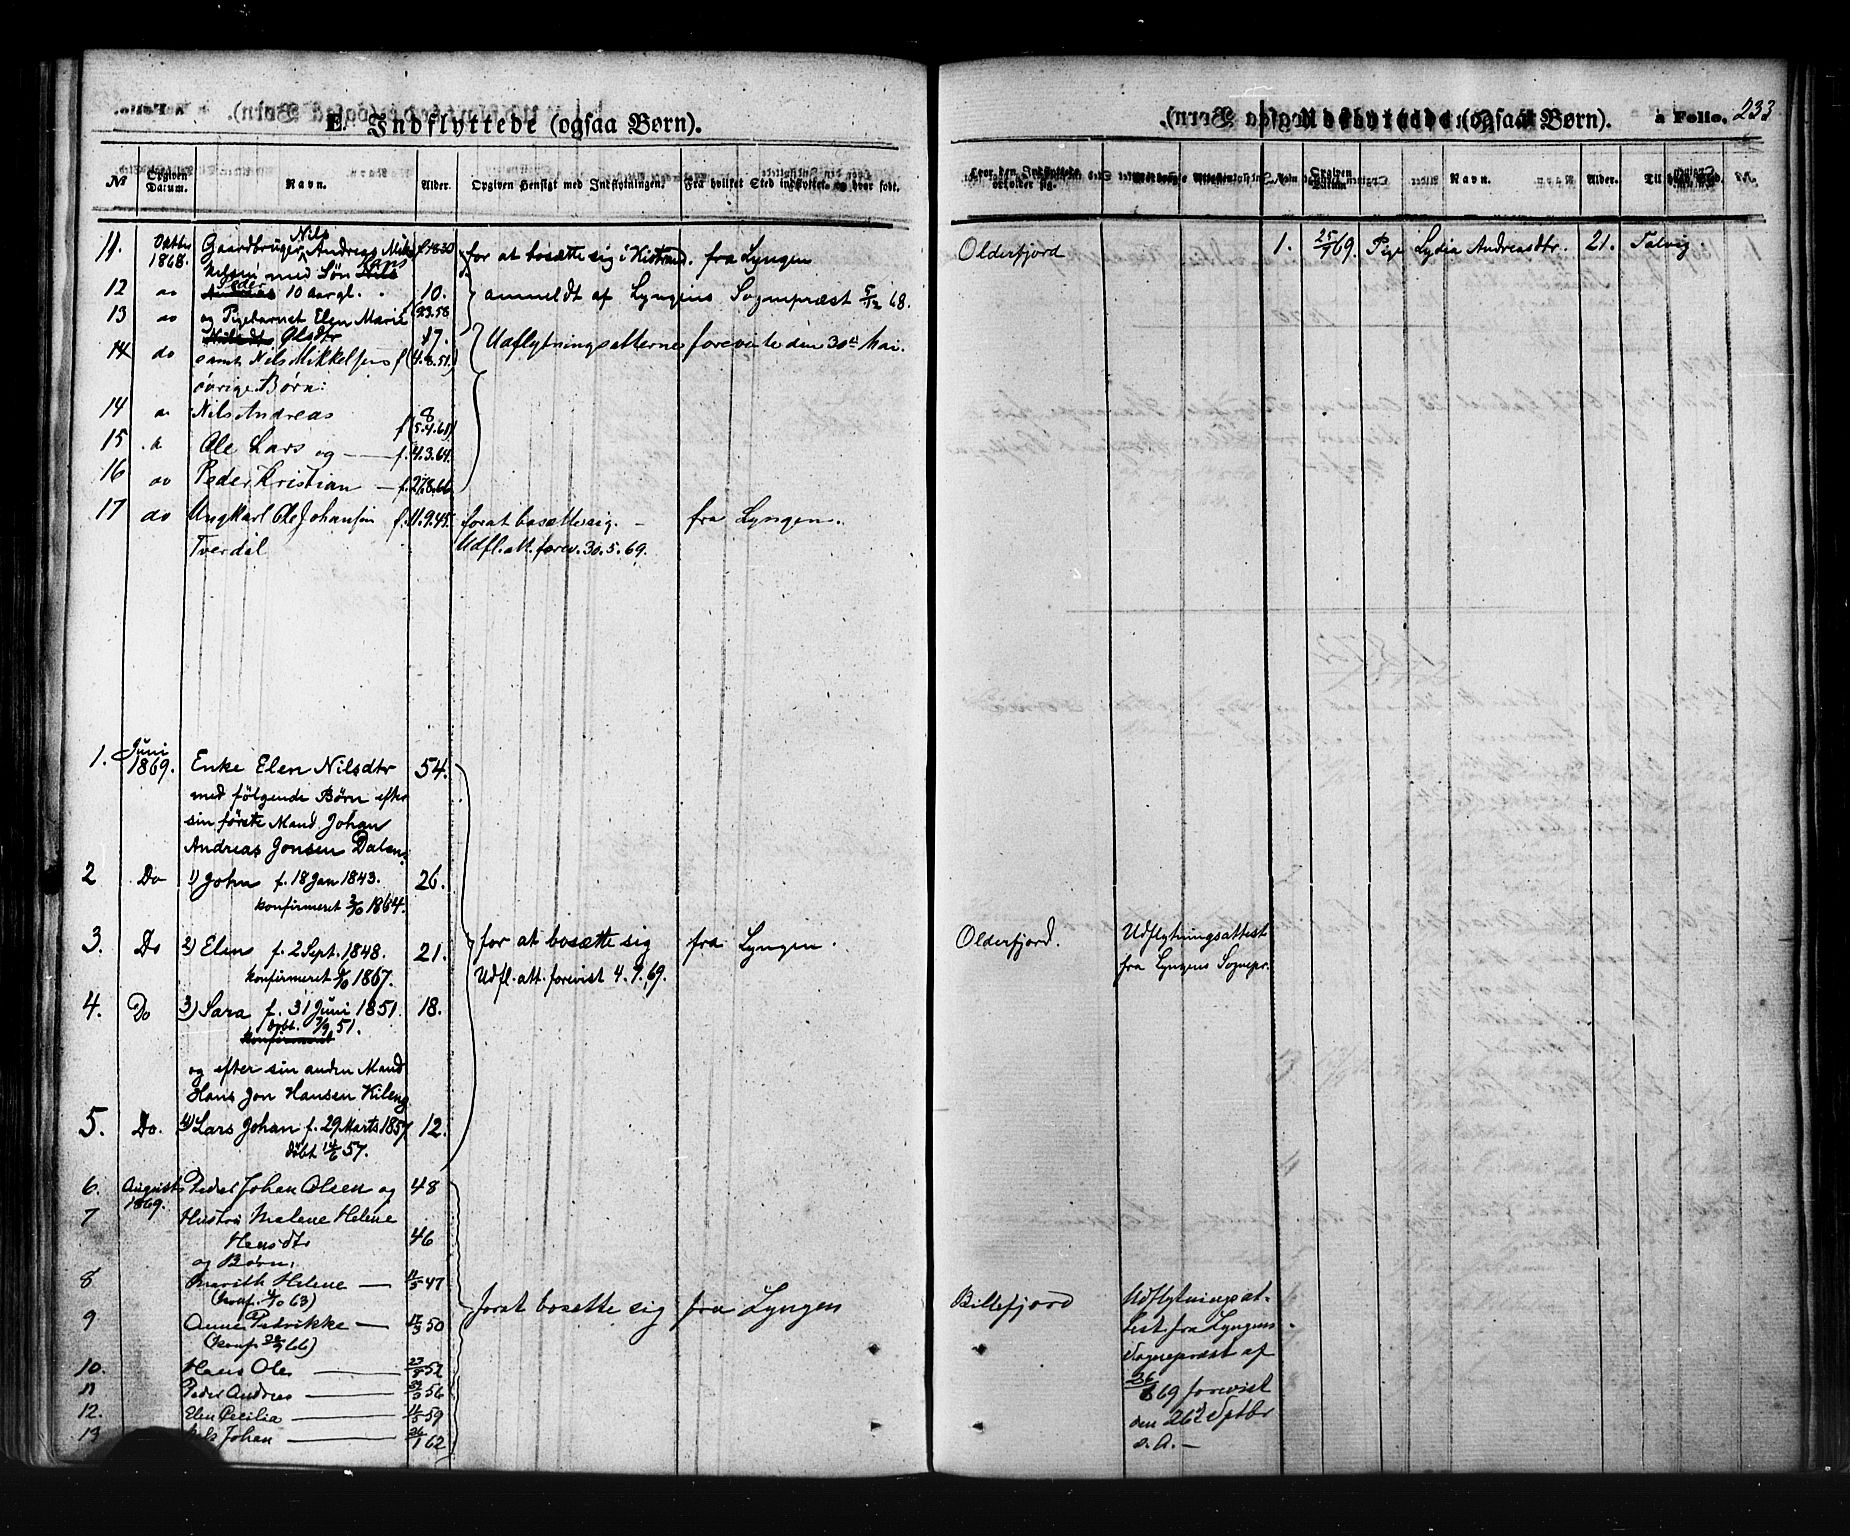 E. Indflyttede (ogsaa Børn).
No
Opgiven Datum.
Navn.
Alder.
Opgiven Hensigt med Indflytningen.
Fra hvilket Sted indflyttet og hvor født.
11. Oktbr 1868. Gaardbruger Nils Andreas Mik- f. 1830 for at bosætte sig i Kistrand. fra Lyngen
kelsen med Søn Hans Nils
12 do Peder Andreas 10 aargl. 10. anmeldt af Lyngens Sognepræst 5/12 68.
13 do og Pigebarnet Elen Marie 23.58
Nilsdtr Olsdtr 17. Udflytningsatterne foreviste den 30te Mai.
14 do samt Nils Mikkelsens f (4.8.51)
øvrige Børn:
14 Nils Andreas 8
15 Ole Lars og — f. 4.3.64.
16 do Peder Kristian — f. 27.8.66
17 do Ungkarl Ole Johansen f. 11.9.45. forat bosætte sig. — fra Lyngen.
Tverdal Udfl. att. forev. 30.5.69.
1. Juni 1869. Enke Elen Nilsdtr 54.
med følgende Børn efter
sin første Mand Johan
Andreas Jonsen Dalen.
2 Do 1) John f. 18 Jan 1843. 26.
konfirmeret 2/10 1864.
3. Do 2) Elen f. 2 Sept. 1848. 21. for at bosætte sig fra Lyngen.
konfirmeret 1867. Udfl. att. forevist 4.9.69.
4. Do 3) Sara f. 31 Juni 1851. 18.
døbt. 7/9 51.
konfirmeret
og efter sin anden Mand
Hans Jon Hansen Kileng
5. Do. 4) Lars Johan f. 29 Marts 1857 12.
døbt 14/6 57.
6. August 1869. Peder Johan Olsen og 48
7 Hustru Malene Helene
Hansdtr 46
og Børn:
8 Marith Helene — 47
(konf. 4/10 63)
9 Anne Pedrikke — 50
(konf. 66)
forat bosætte sig fra Lyngen
10. Hans Ole — 52
11 Peder Andreas — 56
12. Elen Cecilia — 59
13 Johan — 62
Udflyttede (ogsaa Børn).
a Folio. 233
Hvor den Indflyttede opholder sig.
Opgiven Datum
Navn.
Alder.
Olderfjord
1. 25/9 69. Pige Lydia Andreasdtr. 21. Talvig
Olderfjord. Udflytningsattest
fra Lyngens Sognepr.
Billefjord Udflytningsat-
test fra Lyngens
Sognepræst af
26/8 69 forevist
den 26d Septbr
s. A. —